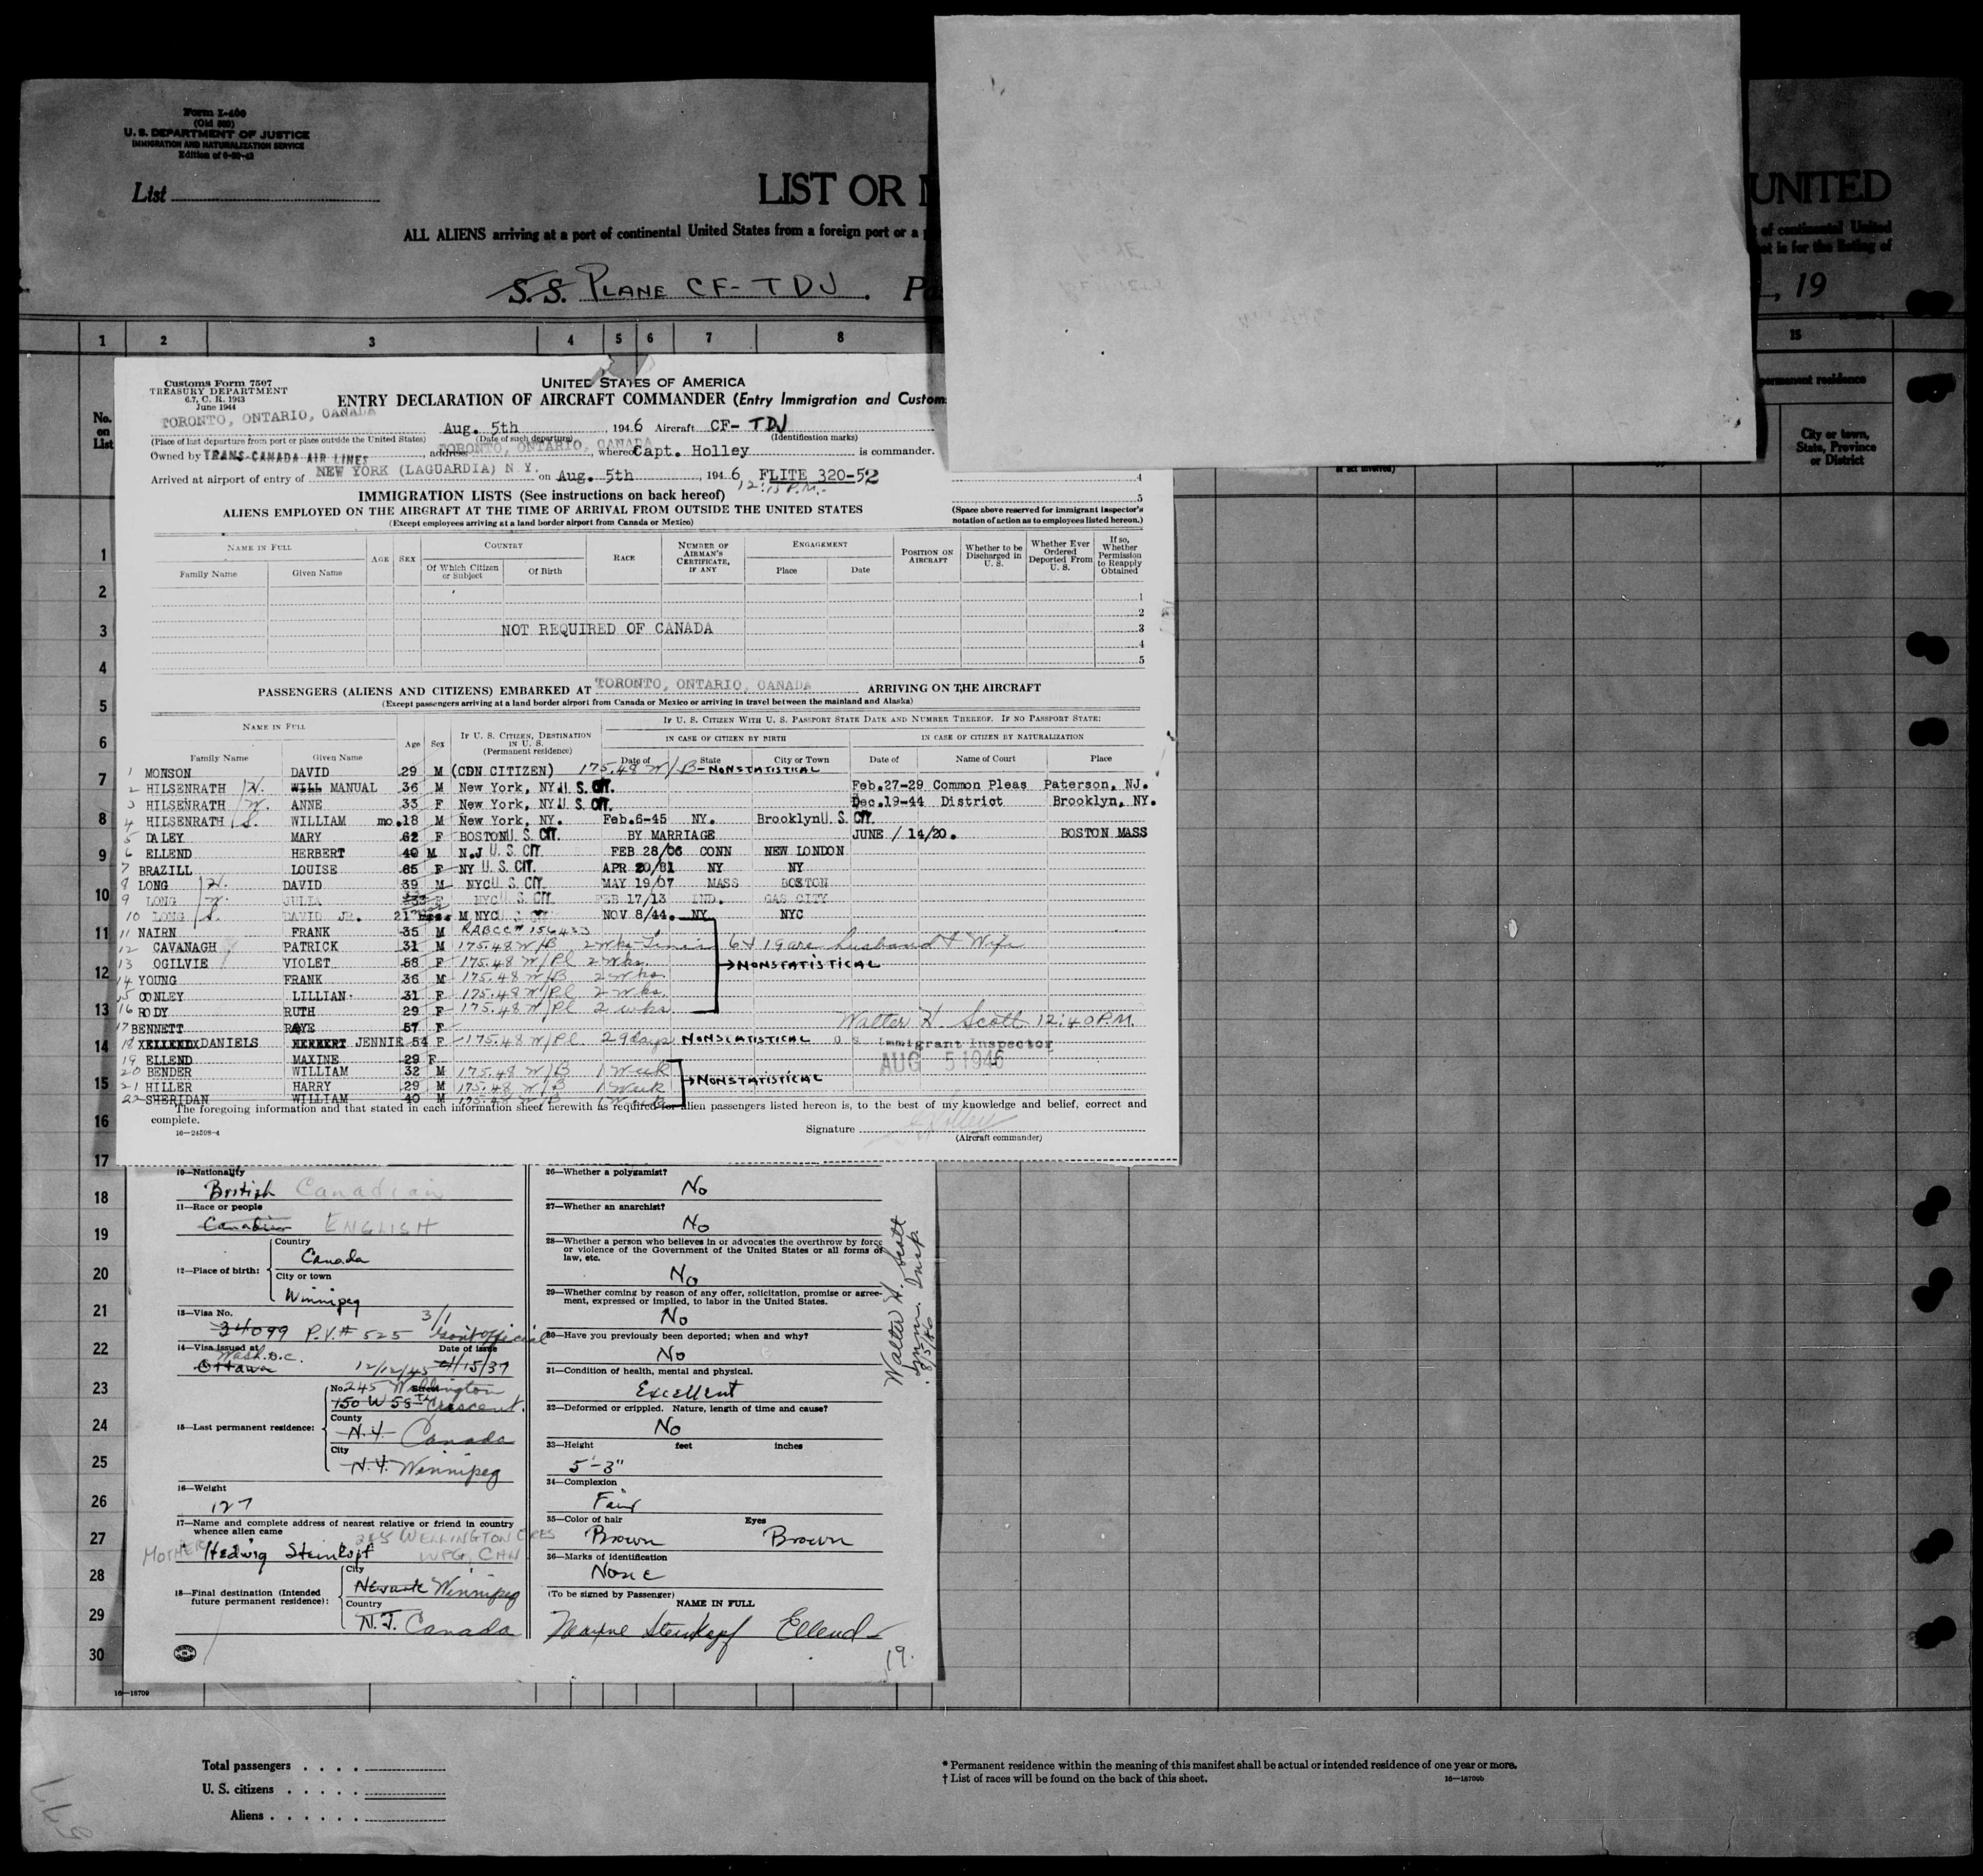 Form I-400
(Old 500)
U. S. DEPARTMENT OF JUSTICE
IMMIGRATION AND NATURALIZATION SERVICE
List
LIST OR UNITED
ALL ALIENS arriving at a port of continental United States from a foreign port or a
of continental United
is for the listing of
S.S. PLANE CF-TDJ.
, 19
1 2 3 4 5 6 7 8 15
permanent residence
No. on List
City or town, State, Province or District
Customs Form 7507
TREASURY DEPARTMENT
6.7, C. R. 1943
June 1944
UNITED STATES OF AMERICA
ENTRY DECLARATION OF AIRCRAFT COMMANDER (Entry Immigration and Custom
TORONTO, ONTARIO, CANADA Aug. 5th , 1946 Aircraft CF- TDJ
(Place of last departure from port or place outside the United States) (Date of such departure) (Identification marks)
Owned by TRANS-CANADA AIR LINES, address TORONTO, ONTARIO, CANADA, whereof Capt. Holley is commander.
Arrived at airport of entry of NEW YORK (LAGUARDIA) N.Y. on Aug. 5th , 1946 FLITE 320-52
12:15 P.M.
4
5
IMMIGRATION LISTS (See instructions on back hereof)
ALIENS EMPLOYED ON THE AIRCRAFT AT THE TIME OF ARRIVAL FROM OUTSIDE THE UNITED STATES
(Except employees arriving at a land border airport from Canada or Mexico)
(Space above reserved for immigrant inspector's notation of action as to employees listed hereon.)
NAME IN FULL
Family Name Given Name
AGE SEX
COUNTRY
Of Which Citizen or Subject Of Birth
RACE
NUMBER OF AIRMAN'S CERTIFICATE, IF ANY
ENGAGEMENT
Place Date
POSITION ON AIRCRAFT
Whether to be Discharged in U. S.
Whether Ever Ordered Deported From U. S.
If so, Whether Permission to Reapply Obtained
1
2
NOT REQUIRED OF CANADA 3
4
5
PASSENGERS (ALIENS AND CITIZENS) EMBARKED AT TORONTO, ONTARIO, CANADA ARRIVING ON THE AIRCRAFT
(Except passengers arriving at a land border airport from Canada or Mexico or arriving in travel between the mainland and Alaska)
NAME IN FULL
Family Name Given Name
Age Sex
IF U. S. CITIZEN, DESTINATION IN U. S. (Permanent residence)
IF U. S. CITIZEN WITH U. S. PASSPORT STATE DATE AND NUMBER THEREOF. IF NO PASSPORT STATE:
IN CASE OF CITIZEN BY BIRTH IN CASE OF CITIZEN BY NATURALIZATION
Date of State City or Town Date of Name of Court Place
1 MONSON DAVID 29 M (CDN CITIZEN) 175.48 W/B-NONSTATISTICAL
2 HILSENRATH H. WILL MANUAL 36 M New York, NY. U. S. CIT. Feb.27-29 Common Pleas Paterson, NJ.
3 HILSENRATH W. ANNE 33 F New York, NY. U. S. CIT. Dec.19-44 District Brooklyn, NY.
4 HILSENRATH S. WILLIAM mo.18 M New York, NY. Feb.6-45 NY. Brooklyn U. S. CIT.
5 DALEY MARY 62 F BOSTON U. S. CIT. BY MARRIAGE JUNE / 14/20. BOSTON MASS
6 ELLEND HERBERT 40 M N.J U. S. CIT. FEB 28/06 CONN NEW LONDON
7 BRAZILL LOUISE 65 F NY U. S. CIT. APR 20/81 NY NY
8 LONG H. DAVID 39 M NYC U. S. CIT. MAY 19/07 MASS BOSTON
9 LONG W. JULIA 33 F NYC U. S. CIT. FEB 17/13 IND. GAS CITY
10 LONG S. DAVID JR. 21 Mos M NYC U. S. CIT. NOV 8/44. NY NYC
11 NAIRN FRANK 35 M RABCC# 156433
12 CAVANAGH PATRICK 31 M 175.48 W/B 2 wks 6 + 19 are husband & Wife
13 OGILVIE VIOLET 58 F 175.48 W/Pl 2 wks. NONSTATISTICAL
14 YOUNG FRANK 36 M 175.48 W/B 2 wks.
15 CONLEY LILLIAN 31 F 175.48 W/Pl 2 wks.
16 RODY RUTH 29 F 175.48 W/Pl 2 wks
17 BENNETT RAYE 57 F Walter H Scott 12:40 P.M.
18 XELLENDX DANIELS HERBERT JENNIE 54 F 175.48 W/Pl 29 days NONSTATISTICAL Immigrant Inspector
19 ELLEND MAXINE 29 F AUG 5 1946
20 BENDER WILLIAM 32 M 175.48 W/B 1 Week
21 HILLER HARRY 29 M 175.48 W/B 1 Week NONSTATISTICAL
22 SHERIDAN WILLIAM 40 M 175.48 W/B 1 Week
The foregoing information and that stated in each information sheet herewith as required for alien passengers listed hereon is, to the best of my knowledge and belief, correct and complete.
16—24598-4
Signature Holley
(Aircraft commander)
10—Nationality
British Canadian
11—Race or people
Canadian ENGLISH
12—Place of birth:
Country
Canada
City or town
Winnipeg
13—Visa No. 3/1
34099 P.V.# 525 Gov't official
14—Visa issued at Date of issue
Wash. D.C.
Ottawa 12/12/45 4/15/37
15—Last permanent residence:
No. 245 Wellington Street
150 W 55th Crescent.
County
N.Y. Canada
City
N.Y. Winnipeg
16—Weight
127
17—Name and complete address of nearest relative or friend in country whence alien came
245 WELLINGTON CRES
MOTHER Hedwig Steinkopf WPG, CAN
18—Final destination (Intended future permanent residence):
City
Newark Winnipeg
Country
N.J. Canada
26—Whether a polygamist?
No
27—Whether an anarchist?
No
28—Whether a person who believes in or advocates the overthrow by force or violence of the Government of the United States or all forms of law, etc.
No
29—Whether coming by reason of any offer, solicitation, promise or agreement, expressed or implied, to labor in the United States.
No
30—Have you previously been deported; when and why?
No
31—Condition of health, mental and physical.
Excellent
32—Deformed or crippled. Nature, length of time and cause?
No
33—Height feet inches
5'-3"
34—Complexion
Fair
35—Color of hair Eyes
Brown Brown
36—Marks of identification
None
(To be signed by Passenger)
NAME IN FULL
Maxine Steinkopf Ellend
19.
Walter H. Scott
Imm. Insp
8/5/46
1
2
3
4
5
6
7
8
9
10
11
12
13
14
15
16
17
18
19
20
21
22
23
24
25
26
27
28
29
30
16—18709
Total passengers . . . .
U. S. citizens . . . . .
Aliens . . . . . .
* Permanent residence within the meaning of this manifest shall be actual or intended residence of one year or more.
† List of races will be found on the back of this sheet.
16—18709b